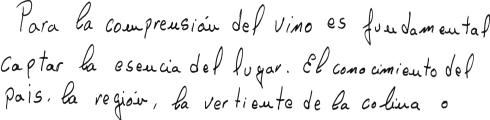 Para la comprensión del vino es fundamental
captar la esencia del lugar. El conocimiento del
país, la región, la vertiente de la colina o